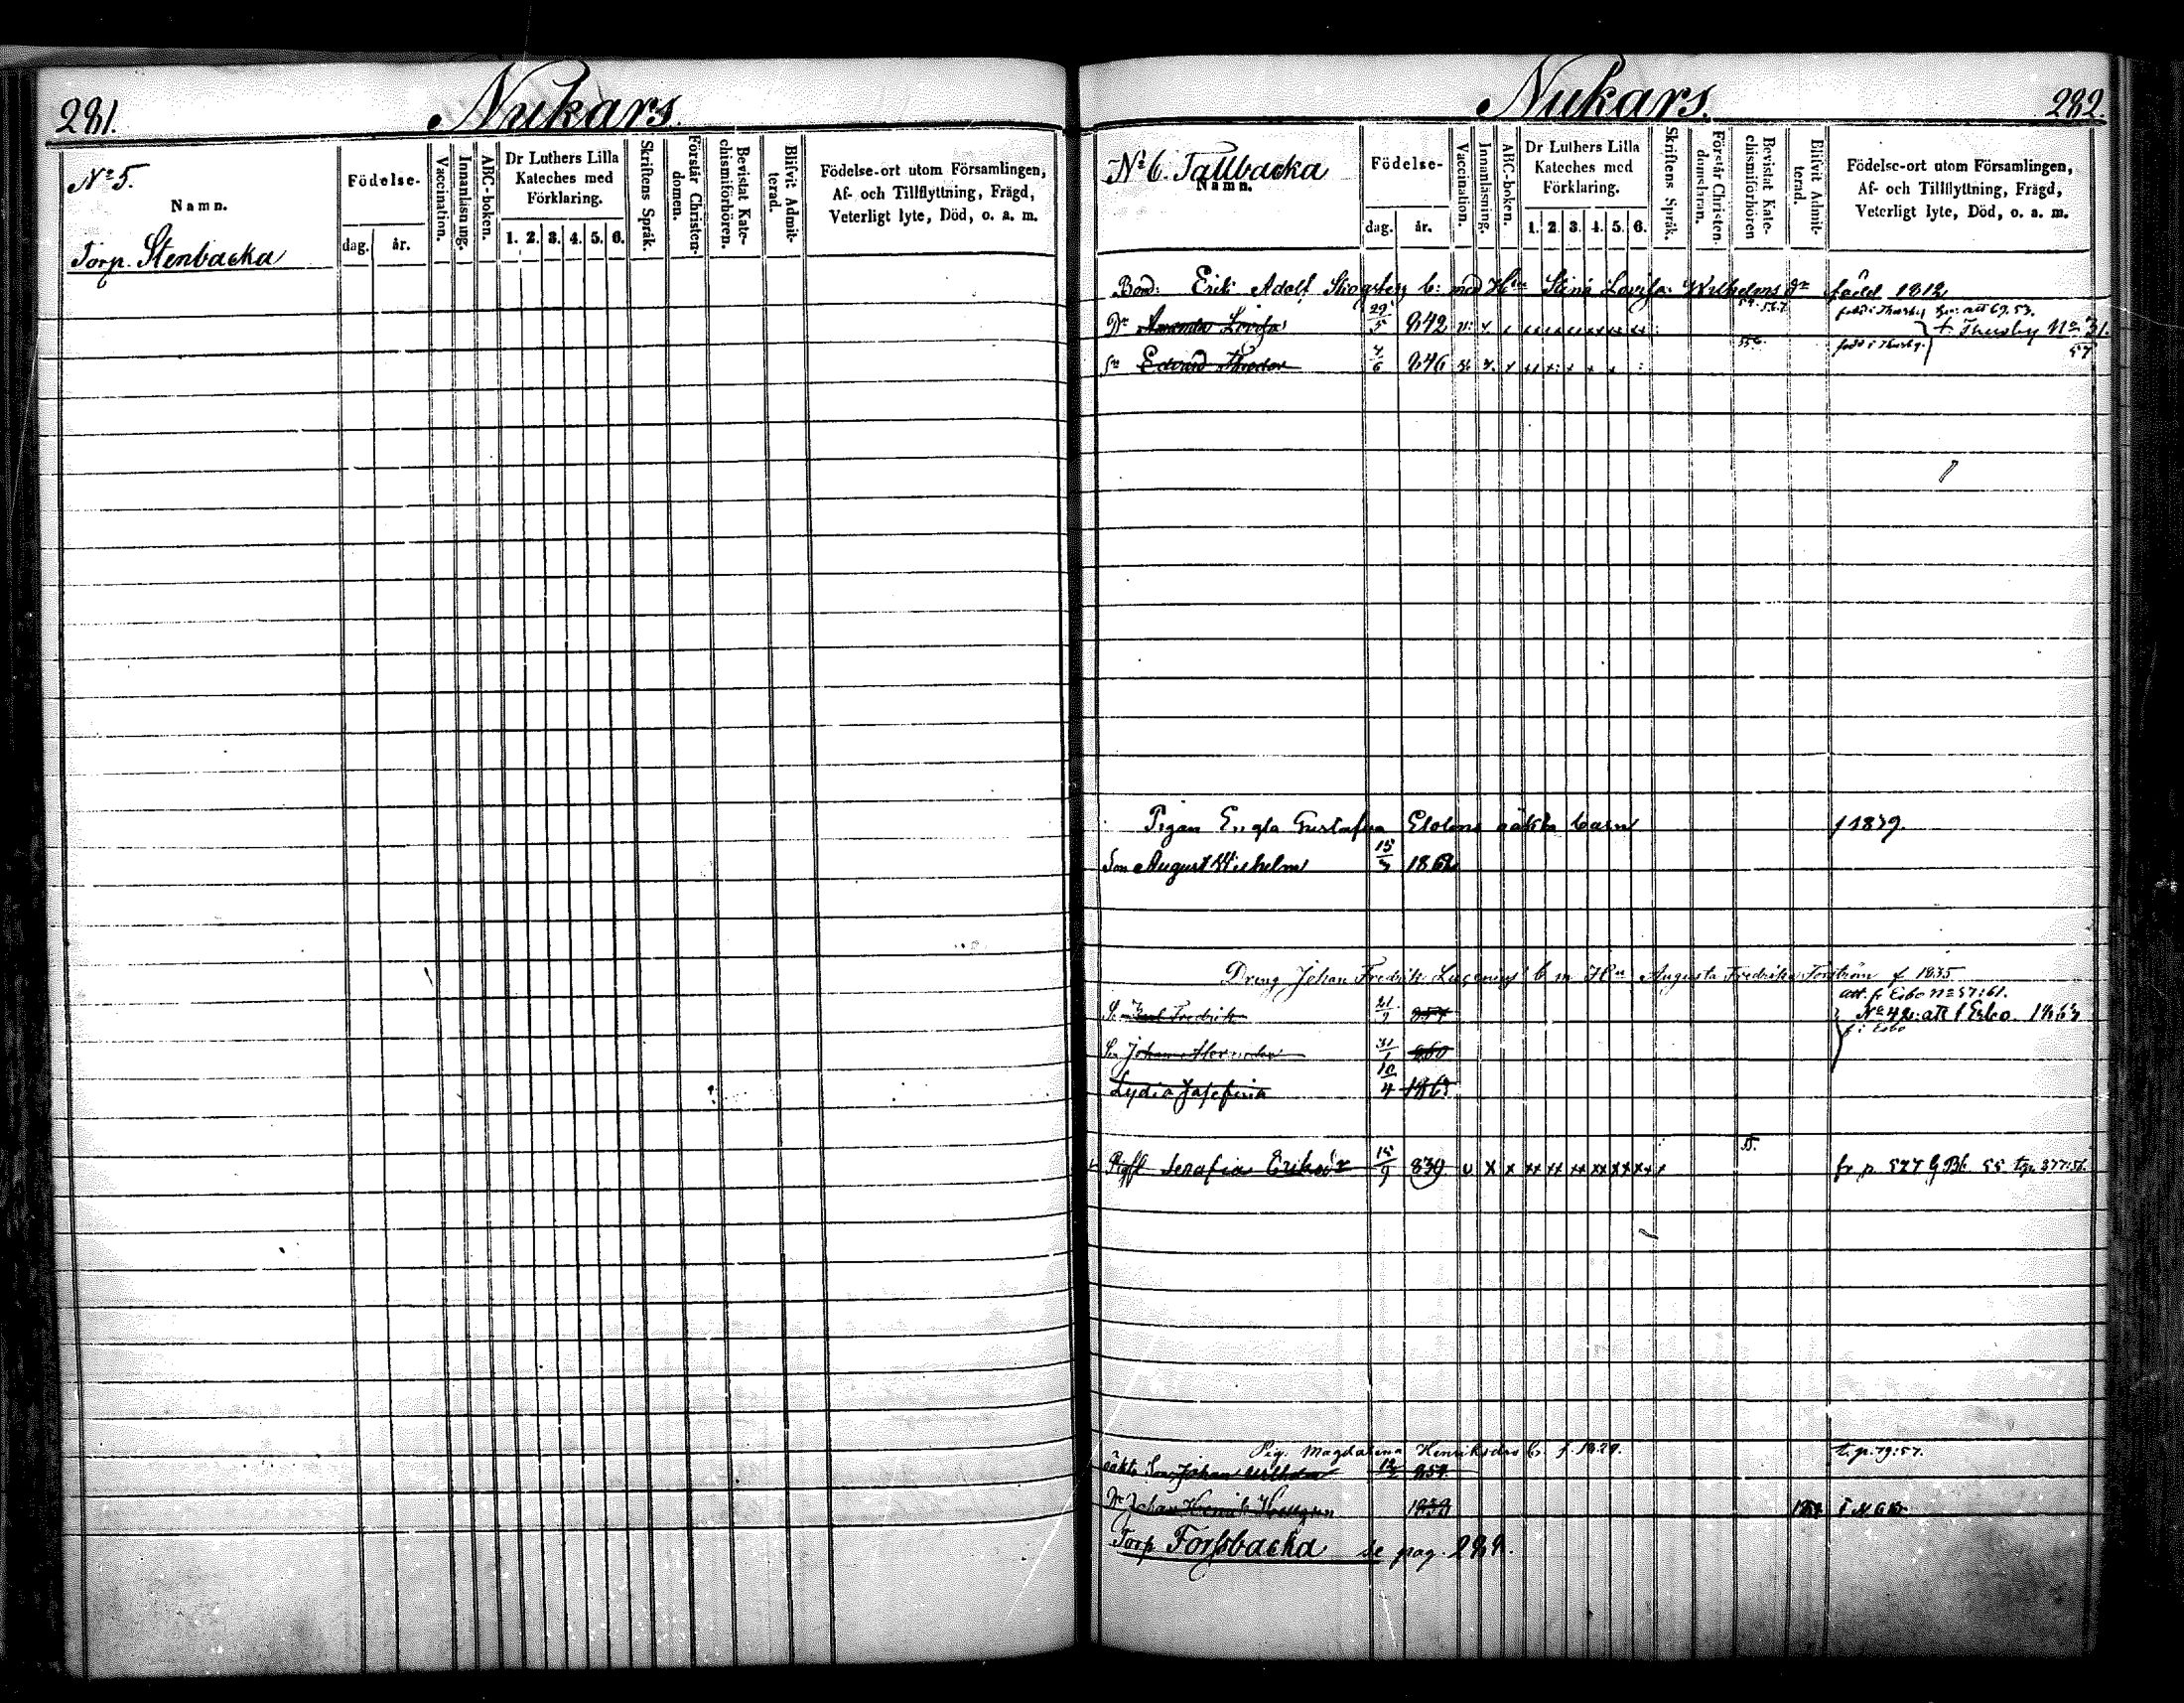 281.
Nukars.
No 5.
Namn.
Torp. Stenbacka
Födelse-
dag. år.
Vaccination.
Innanläsning.
ABC-boken.
Dr Luthers Lilla
Kateches med
Förklaring.
1. 2. 3. 4. 5. 6.
Skriftens Språk.
Förstår Christen-
domen.
Bevistat Kate-
chismiförhören.
Blifvit Admit-
terad.
Födelse-ort utom Församlingen,
Af- och Tillflyttning, Frägd,
Veterligt lyte, Död, o. a. m.
Nukars.
282.
No 6. Tallbacka
Namn.
Födelse-
dag. år.
Vaccination.
Innanläsning.
ABC-boken.
Dr Luthers Lilla
Kateches med
Förklaring.
1. 2. 3. 4. 5. 6.
Skriftens Språk.
Förstår Christen-
domsläran.
Bevistat Kate-
chismiförhören
Blifvit Admit-
terad.
Födelse-ort utom Församlingen,
Af- och Tillflyttning, Frägd,
Veterligt lyte, Död, o. a. m.
Erik Adolf b: med Hu Stina Lovisa Wilhelms dr född 1812
Dr Lovisa 29/5 842 t. Thusby No 31/57
Sn Edvard Theodor 4/6 846
Pigan Engla Gustafva oäkta barn f 1839.
Son August Wilhelm 1862
Dreng Johan Fredrik b m Hu Augusta Fredrika Forström f. 1835
att. fr Esbo no 57:61.
Sn Karl Fredrik 21/9 857 No 42: att t Esbo 1863
f i Esbo
Sn Johan Alexander 31/1 860
Lydia Josefina 10/4 1863
55.
Pig Serafia Eriksdr 15/9 830 fr p 527 G Bk 55 377:56.
Pig. Magdalena Henriksdrs b. f. 1829. t. p. 79:57.
oäkta Son Johan Wilhelm 859
Dr Johan Henrik 1839
Torp Forssbacka se pag. 289.